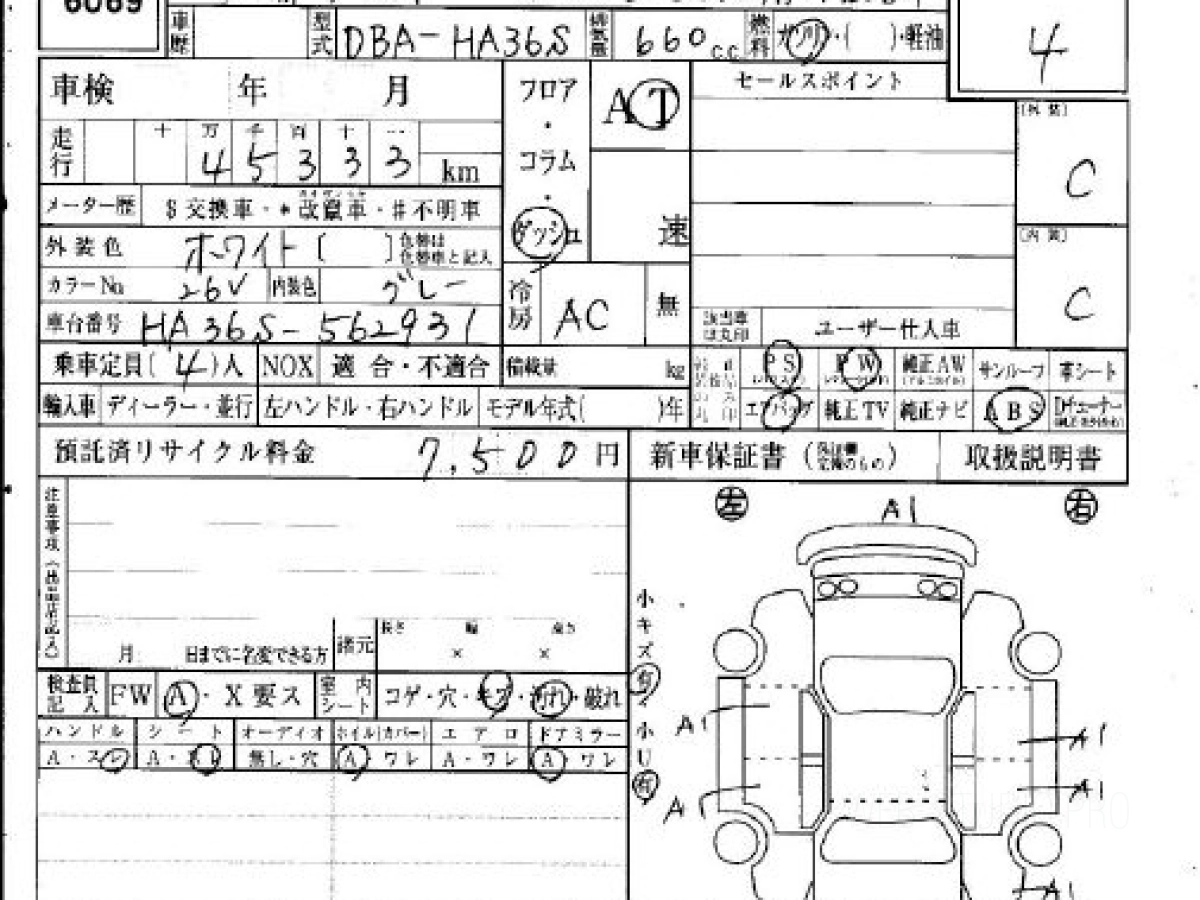 6069
車歴 型式 DBA-HA36S 排気量 660 c.c. 燃料 ガソリン・( )・軽油
4
車検 年 月
フロア・コラム・ダッシュ
AT
速
セールスポイント
[外装]
C
走行 十 万 千 百 十 一
4 5 3 3 3 km
メーター歴 $交換車・*改竄車・#不明車
外装色 ホワイト [ ] 色替は 色替車と記入
[内装]
C
カラーNo 26V 内装色 グレー
冷房 AC 無
車台番号 HA36S-562931
該当車は丸印 ユーザー仕入車
乗車定員(4)人 NOX 適合・不適合 積載量 kg
PS PW 純正AW サンルーフ 革シート
輸入車 ディーラー・並行 左ハンドル・右ハンドル モデル年式( )年
エアバッグ 純正TV 純正ナビ ABS
預託済リサイクル料金 7,500円
新車保証書 取扱説明書
注意事項(出品店記入)
左 右
A1
月 日までに名変できる方 諸元 長さ × 幅 × 高さ
小キズ有・小U有
検査員記入 FW A・X要ス 室内シート コゲ・穴・キズ・汚れ・破れ
ハンドル シート オーディオ ホイル(カバー) エアロ ドアミラー
A・スレ A・スレ 無し・穴 A ワレ A・ワレ A ワレ
A1 A1
A A1
A1